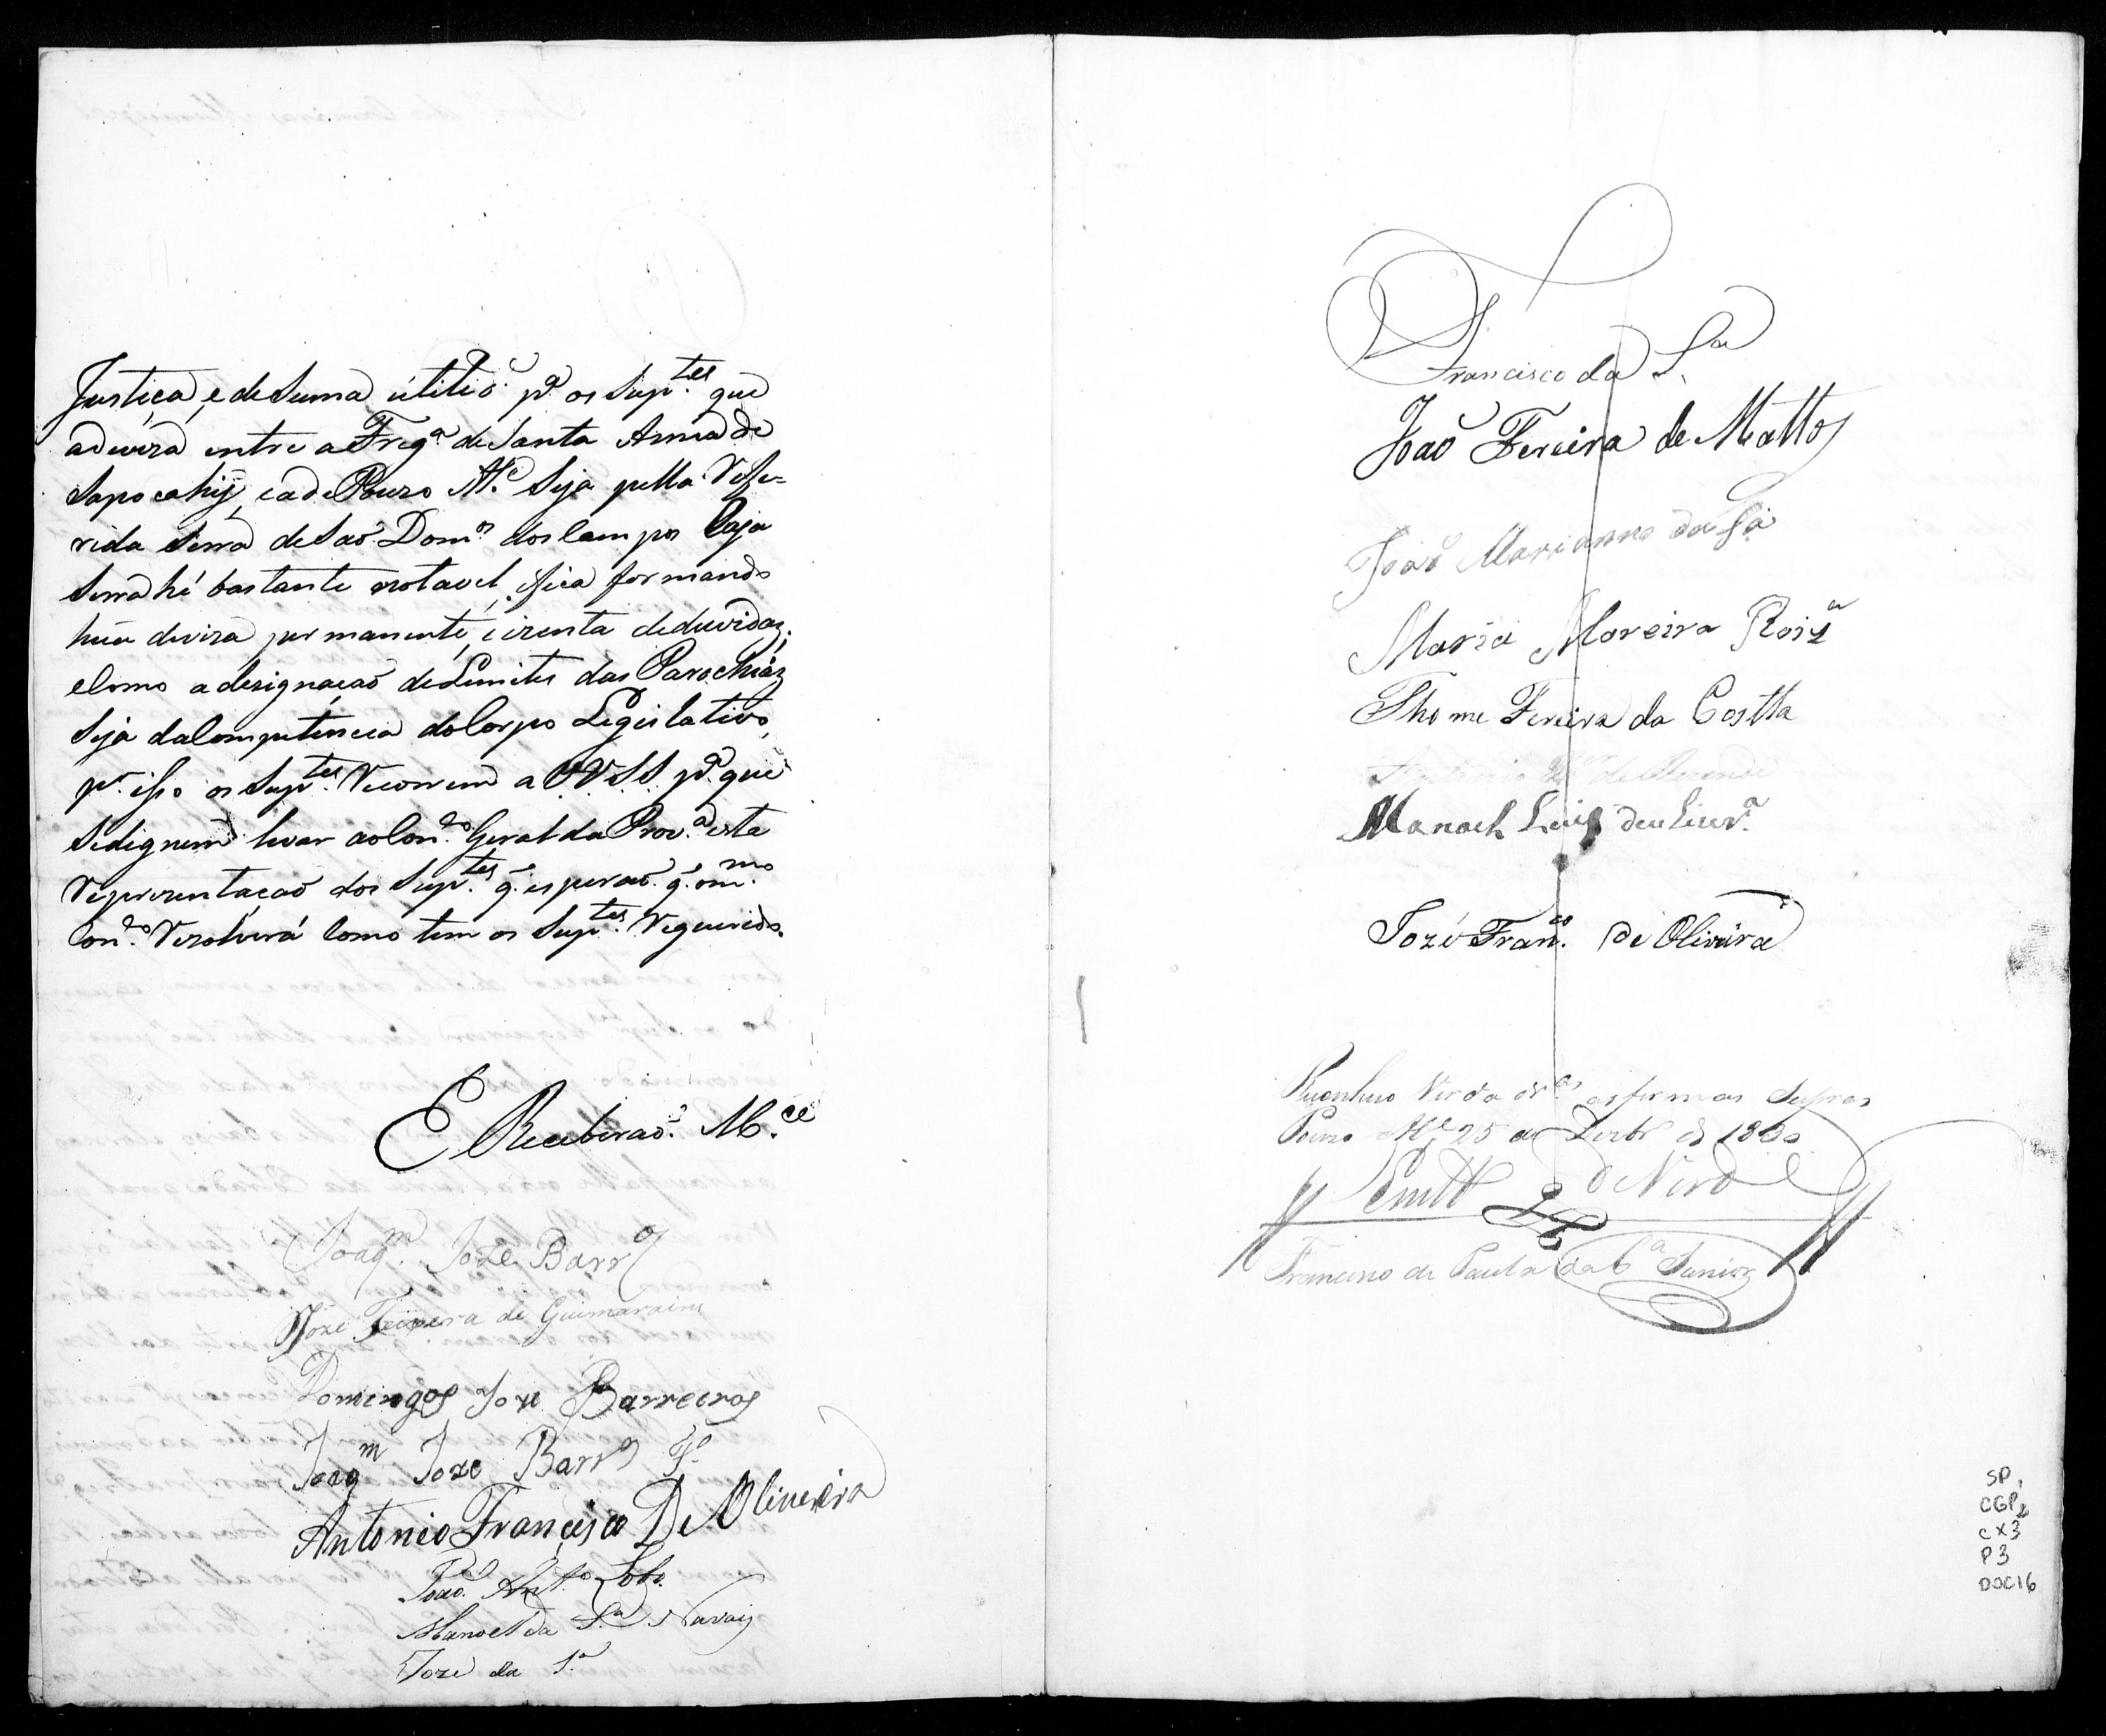 Justiça, e de Suma útilid.e p.a os Sup.tes que
a deviza entre a Freg.a de Santa Anna de
Sapocahÿ, e a de Pouzo Al.e Seja pella Refe-
rida Serra de Saõ Dom.os dos Campos Cuja
Serra hé bastante notavel, e fica formando
hũa deviza permanente, e izenta de duvidaz;
e Como a designaçaõ de Limites das Parochiaz
Seja da Competencia do Corpo Legislativo,
p.r isso os Sup.tes Recorrem a VV.SS. p.a que
Se dignem levar ao Con.do Geral da Prov.a esta
Reprezentaçaõ dos Sup.tes q.' esperaõ q.' o m.mo
Con.do Rezolverá Como tem os Sup.tes Requerido.
E Receberaõ M.ce
Joaq.m Joze Barr.os
Joze Teixera de Guimarains
Domingos Joze Barreiros
Joaq.m Joze Barr.os F.o
Antonio Francisco De Oliveira
Joaõ Ant.o Lobo
Manoel da S.a Navais
Jozé da S.a
Francisco da S.a
Joaõ Fereira de Mattos
Joaõ Marianno da S.a
Maria Moreira Roiz
Thome Fereira da Costta
Antonio de Rezende
Manoel Luis deuliver.a
Jozé Fran.co de Oliveira
Reconheco Verdadr.as as firmas Supras
Pouzo Al.e 25 de Dezbr de 1830
Em tt de Verd.e
Francisco de Paula da C.a Junior
SP,
CGP2
CX3
P3
DOC16